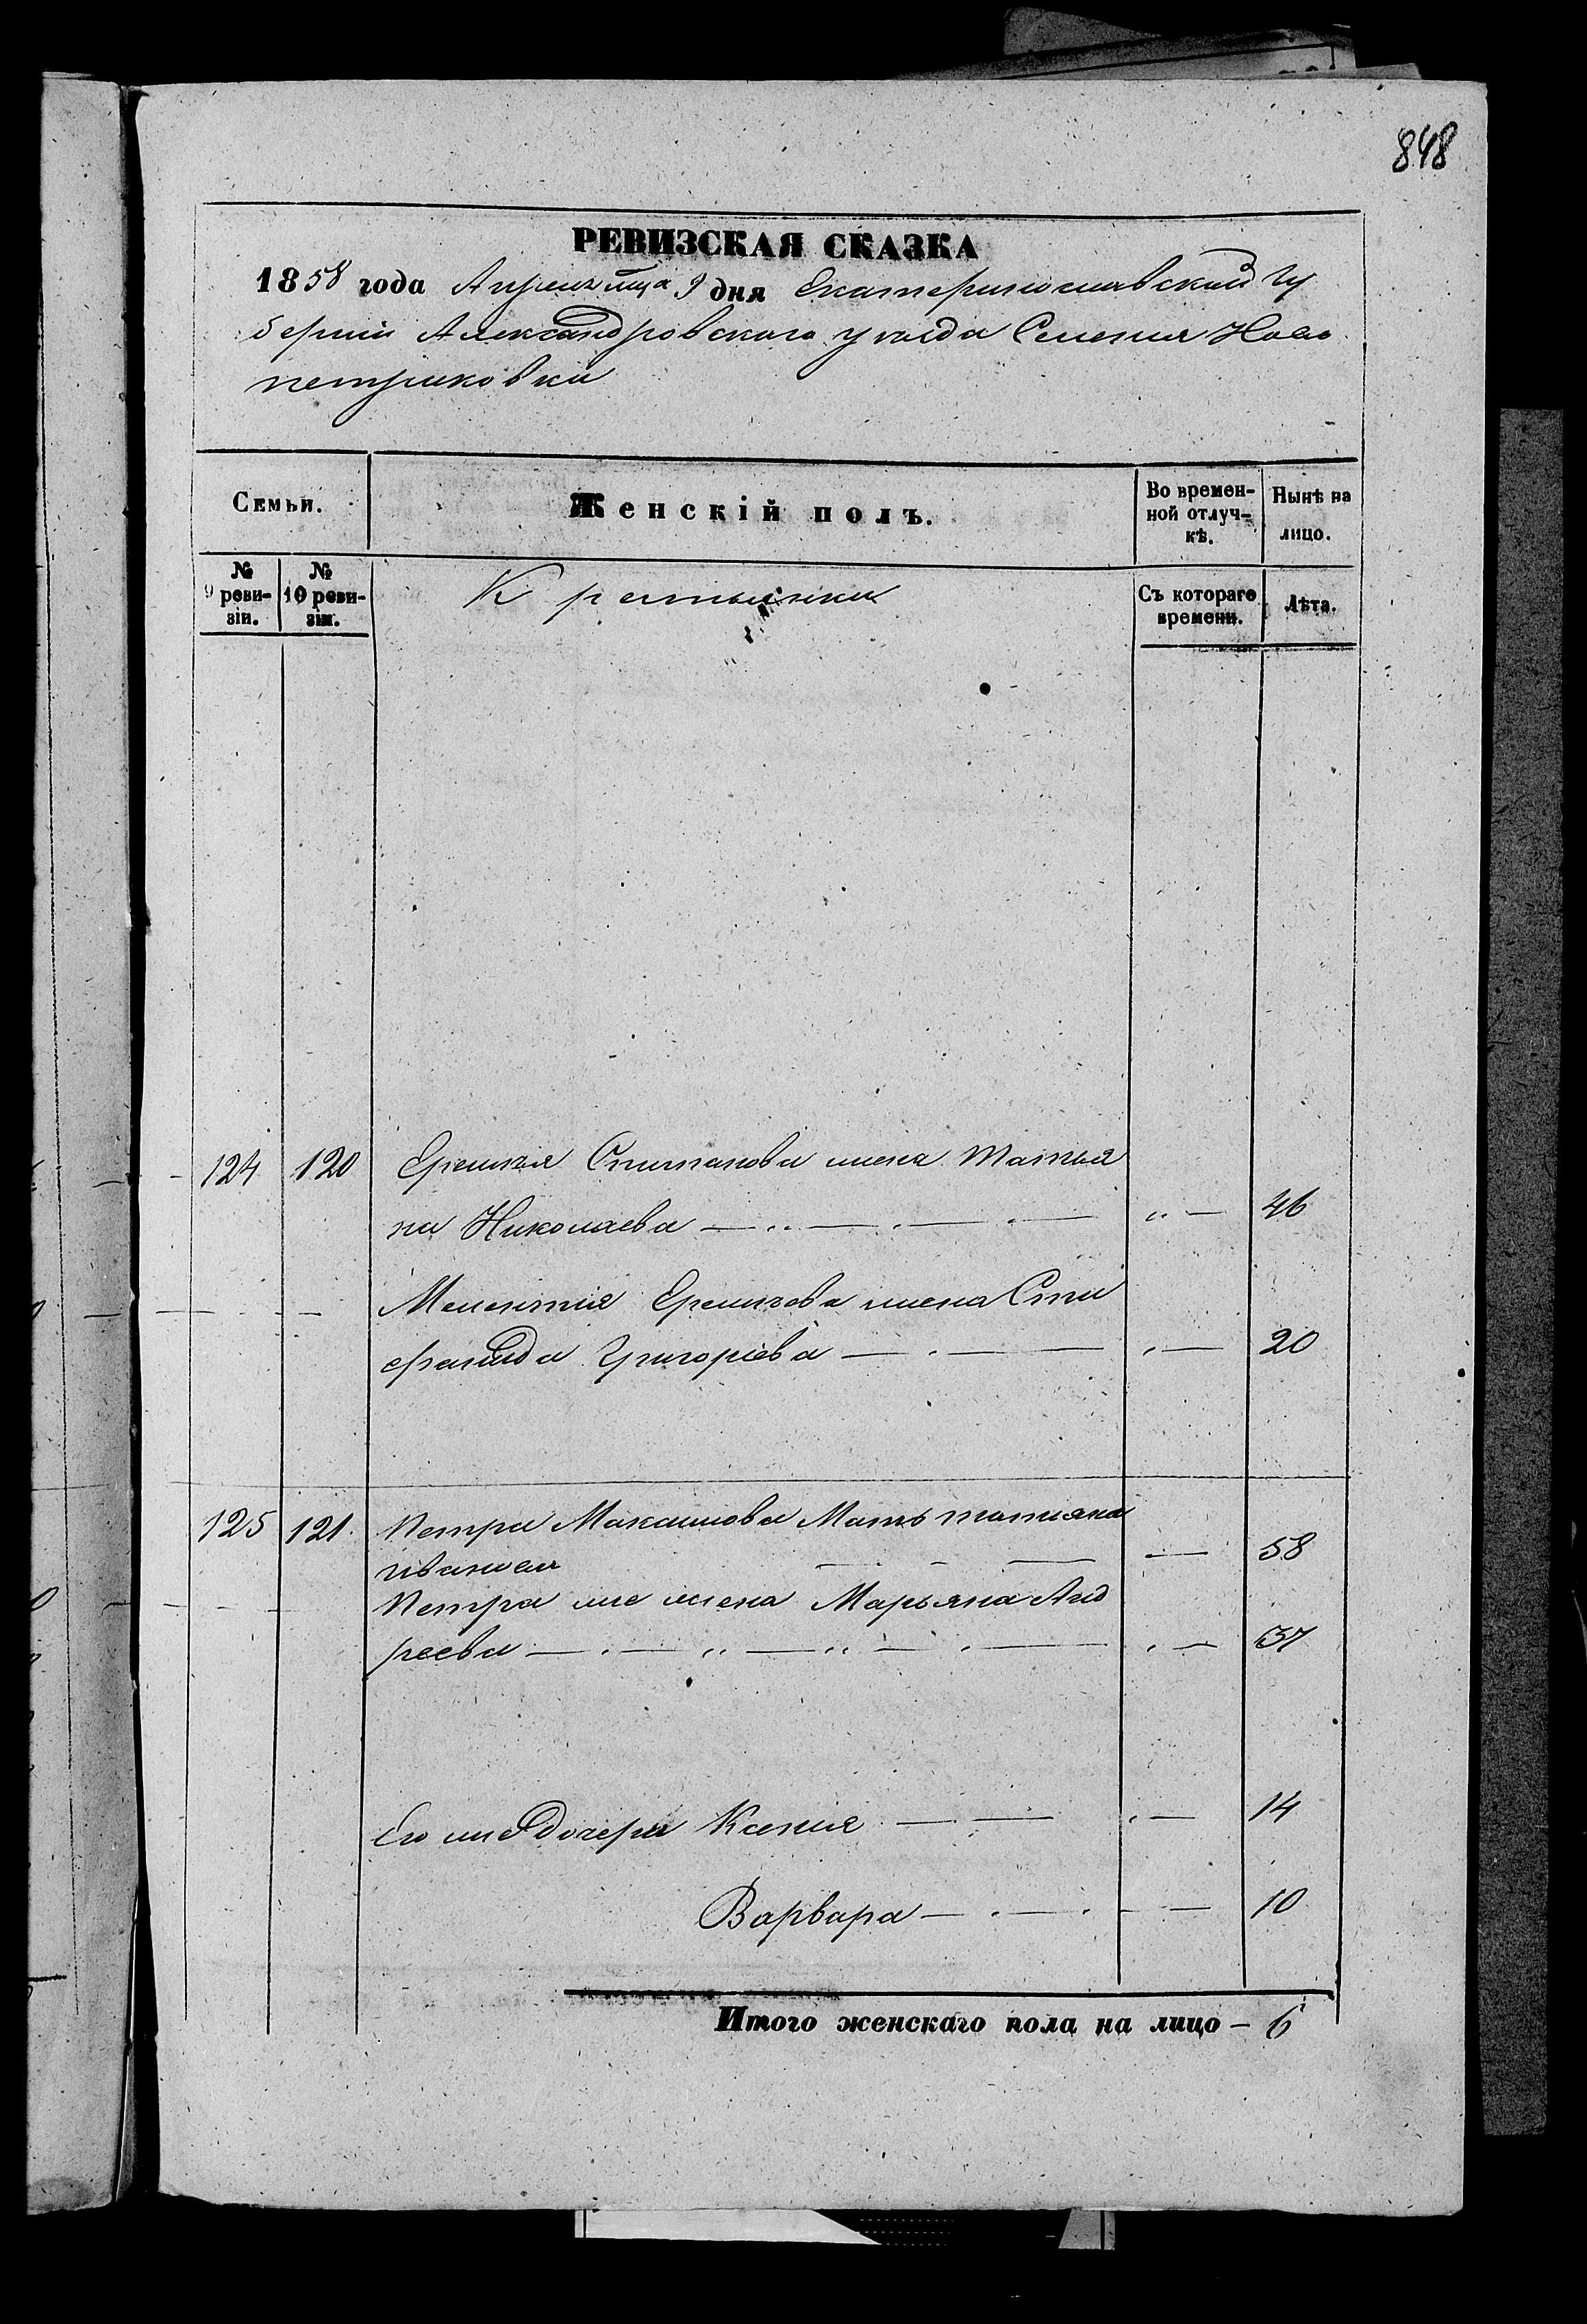 848
РЕВИЗСКАЯ СКАЗКА
1858 года Апреля мца 9 дня Екатеринославской Гу
берніи Александровскаго уезда Селения Ново
петриковки
Семьи. Женскій полъ. Во времен- Нынѣ на
ной отлуч- лицо.
кѣ.
№ № Крестьянки Съ котораго Лѣта.
9 реви- 10 реви- времени.
зіи. зіи.
124 120 Еремѣя Степанова жена Татья
на Николаева 46
Мелентия Еремѣева жена Сте
фанида Григоріева 20
125 121. Петра Максимова Мать татияна
иванова 58
Петра же жена Марьяна Анд
реева 37
Его же Дочери Ксения 14
Варвара 10
Итого женскаго пола на лицо - 6